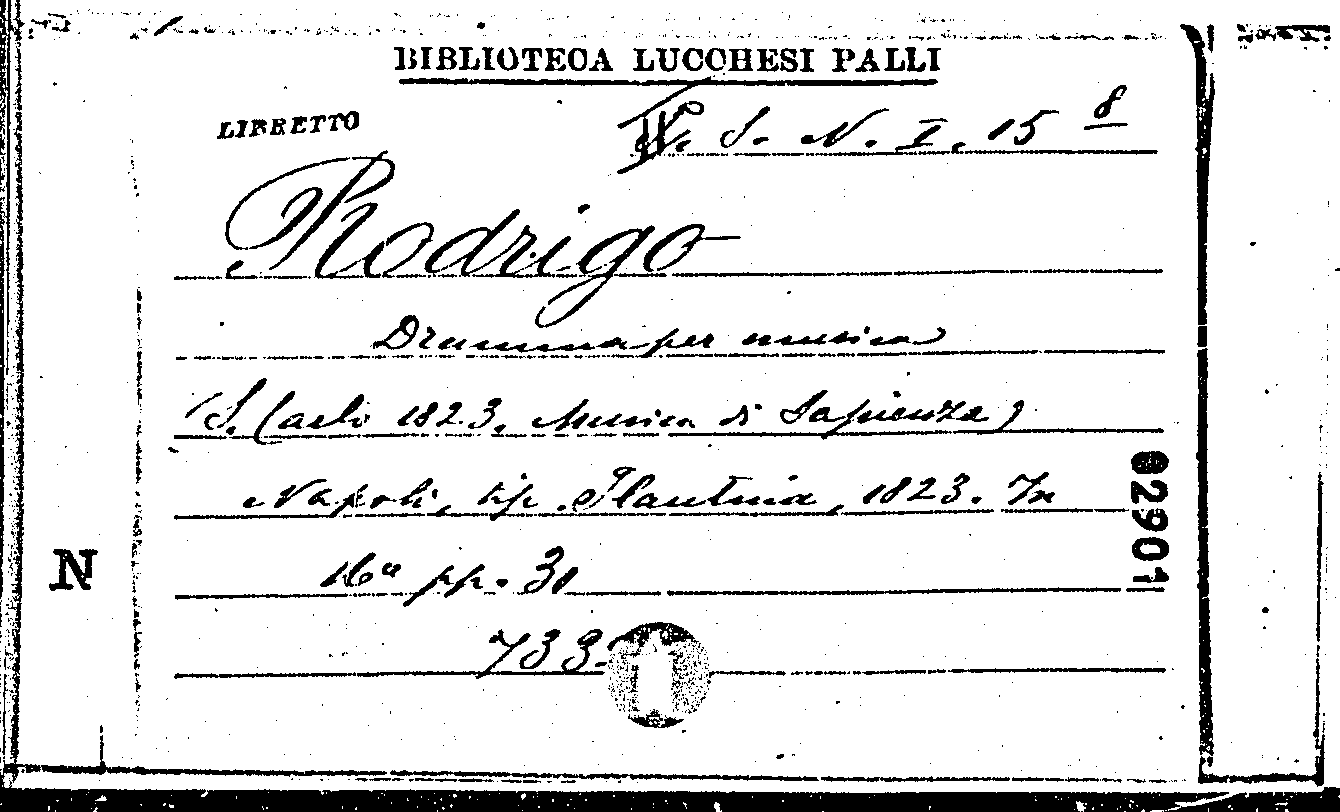 BIBLIOTECA LUCCHESI PALLI
LIBRETTO
S. N. I. 15 8
Rodrigo
Dramma per musica
(S. Carlo 1823. Musica di Sapienza)
Napoli, tip. Flautina, 1823. In
16º pp. 31
N
02901